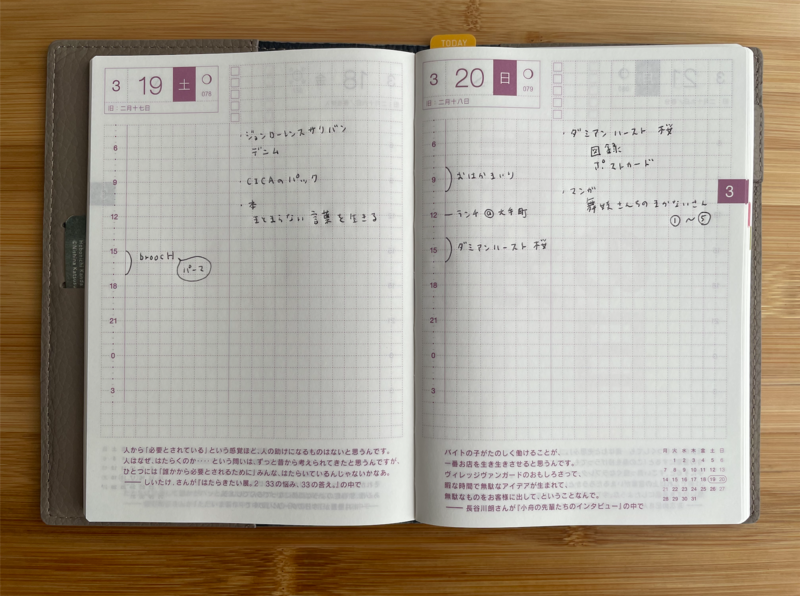 TODAY
3 19 土
078
旧:二月十七日
・ジョンローレンスサリバン
デニム
・CICAのパック
・本
まとまらない言葉を生きる
6
9
12
15
18
21
0
3
brooch
パーマ
人から「必要とされている」という感覚ほど、人の助けになるものはないと思うんです。
人はなぜ、はたらくのか‥‥という問いは、ずっと昔から考えられてきたと思うんですが、
ひとつには「誰かから必要とされるために」みんな、はたらいているんじゃないかなあ。
── しいたけ.さんが『はたらきたい展。2 33の悩み、33の答え。』の中で
3 20 日
079
旧:二月十八日
・ダミアンハースト 桜
図録
ポストカード
・マンガ
舞妓さんちのまかないさん
①〜⑤
6
9
12
15
18
21
0
3
おはかまいり
ランチ@大手町
ダミアンハースト 桜
3
バイトの子がたのしく働けることが、
一番お店を生き生きさせると思うんです。
ヴィレッジヴァンガードのおもしろさって、
暇な時間で無駄なアイデアが生まれて、
無駄なものをお客様に出して、ということなんで。
── 長谷川朗さんが『小舟の先輩たちのインタビュー』の中で
月 火 水 木 金 土 日
1 2 3 4 5 6
7 8 9 10 11 12 13
14 15 16 17 18 19 20
21 22 23 24 25 26 27
28 29 30 31